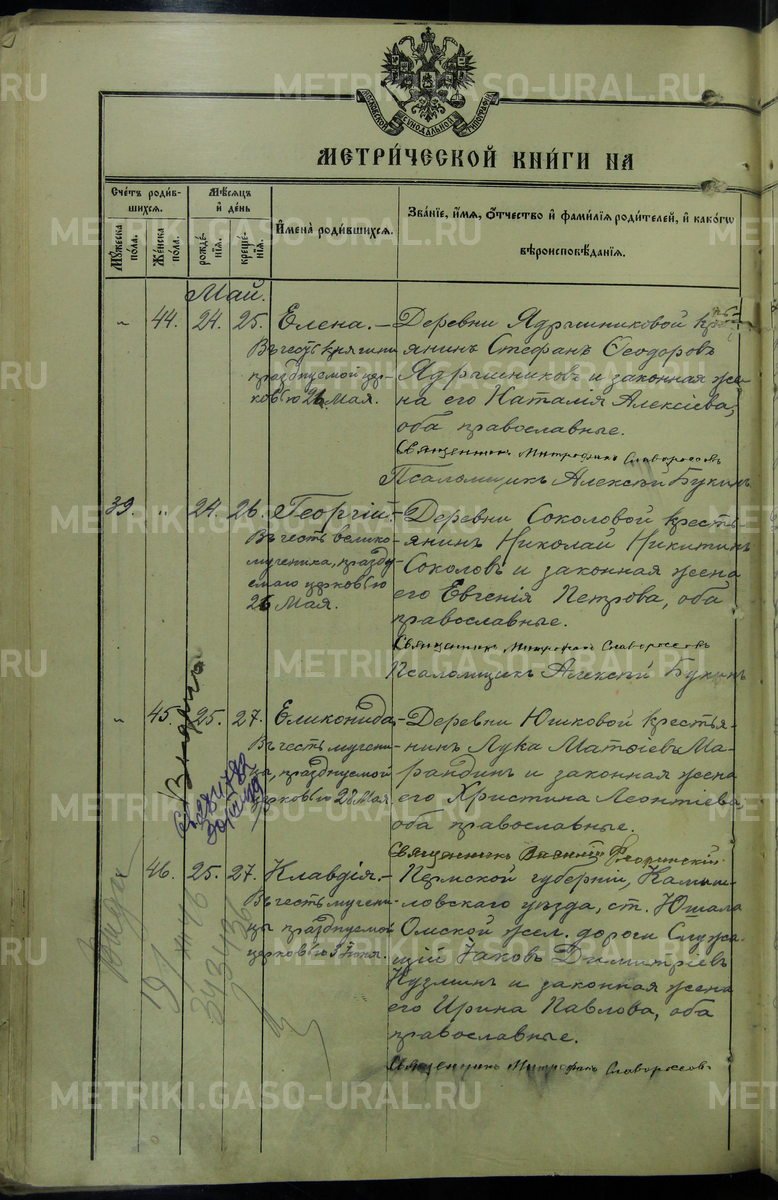 МЕТРИ́ЧЕСКОЙ КНИ́ГИ НА
Сче́тъ роди́в-
шихся.
Му́жеска по́ла.
Же́нска по́ла.
Мѣ́сяцъ
и́ де́нь
рожде́нія.
креще́нія.
И́мена̀ роди́вшихся.
Зва́нїе, и́мя, ѻ́тчество и́ фами́лїя роди́телей, и́ како́гѡ
вѣроисповѣ́данїя.
Май.
" 44. 24. 25. Елена. –
Въ честь княгини
празднуемой цер-
ковію 26 Мая.
Деревни Ядрышниковой
янинъ Стефанъ Ѳеодоровъ
Ядрышниковъ и законная же-
на его Наталія Алексіева,
оба православные.
Священникъ Митрофанъ Славороссовъ
Псаломщикъ Алексѣй Букинъ
39. " 24. 26. Георгій. –
Въ честь велико-
мученика, праздну-
емаго церковію
26 Мая.
Деревни Соколовой кресть-
янинъ Николай Никитинъ
Соколовъ и законная жена
его Евгенія Петрова, оба
православные.
Священникъ Митрофанъ Славороссовъ
Псаломщикъ Алексѣй Букинъ
" 45. 25. 27. Еликонида, –
Въ честь мучени-
цы, празднуемой
церковію 28 Мая
Деревни Юшковой крестья-
нинъ Лука Матѳіевъ Ма-
рандинъ и законная жена
его Христина Леонтіева,
оба православные.
Священникъ
46. 25. 27. Клавдія. –
Въ честь мучени-
цы празднуемой
церковію Іюня.
Пермской губерніи, Камыш-
ловскаго уѣзда, ст. Юшала
Омской жел. дороги Служа-
щій Іаковъ Димитріевъ
Кузминъ и законная жена
его Ирина Павлова, оба
православные.
Священникъ Митрофанъ Славороссовъ
METRIKI.GASO-URAL.RU